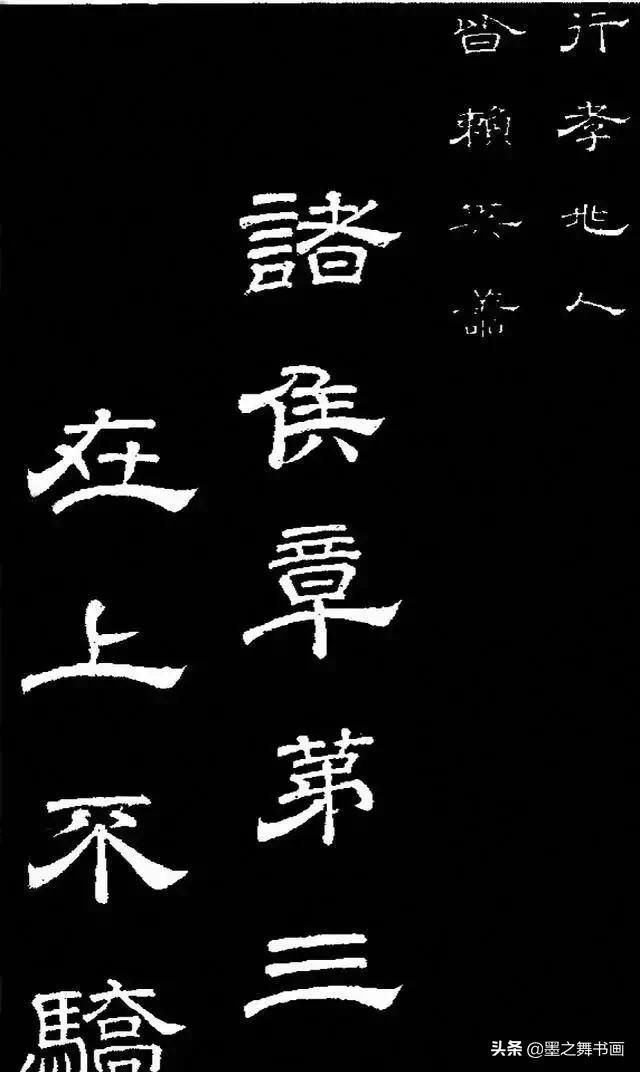 行孝兆人
皆賴其善
諸侯章弟三
在上不驕
头条 @墨之舞书画